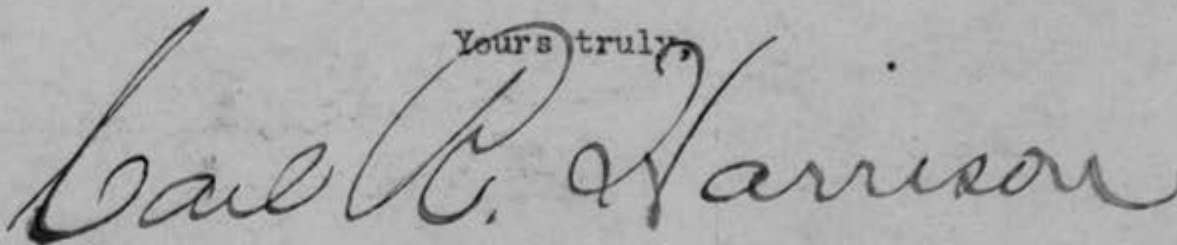 Yours truly,
Carl R. Harrison